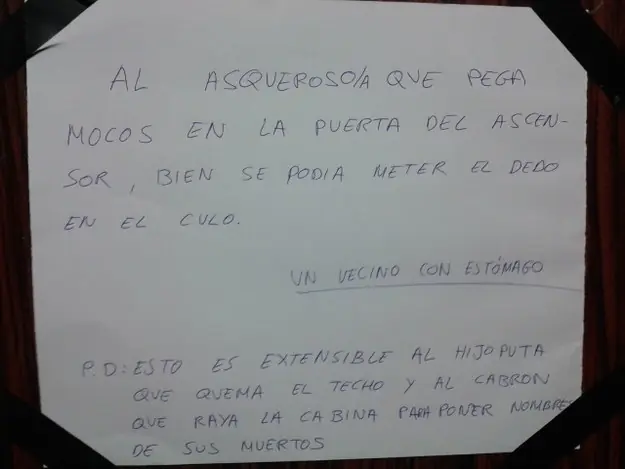 AL ASQUEROSO/A QUE PEGA
MOCOS EN LA PUERTA DEL ASCEN-
SOR, BIEN SE PODIA METER EL DEDO
EN EL CULO.
UN VECINO CON ESTÓMAGO
P.D: ESTO ES EXTENSIBLE AL HIJOPUTA
QUE QUEMA EL TECHO Y AL CABRON
QUE RAYA LA CABINA PARA PONER NOMBRES
DE SUS MUERTOS